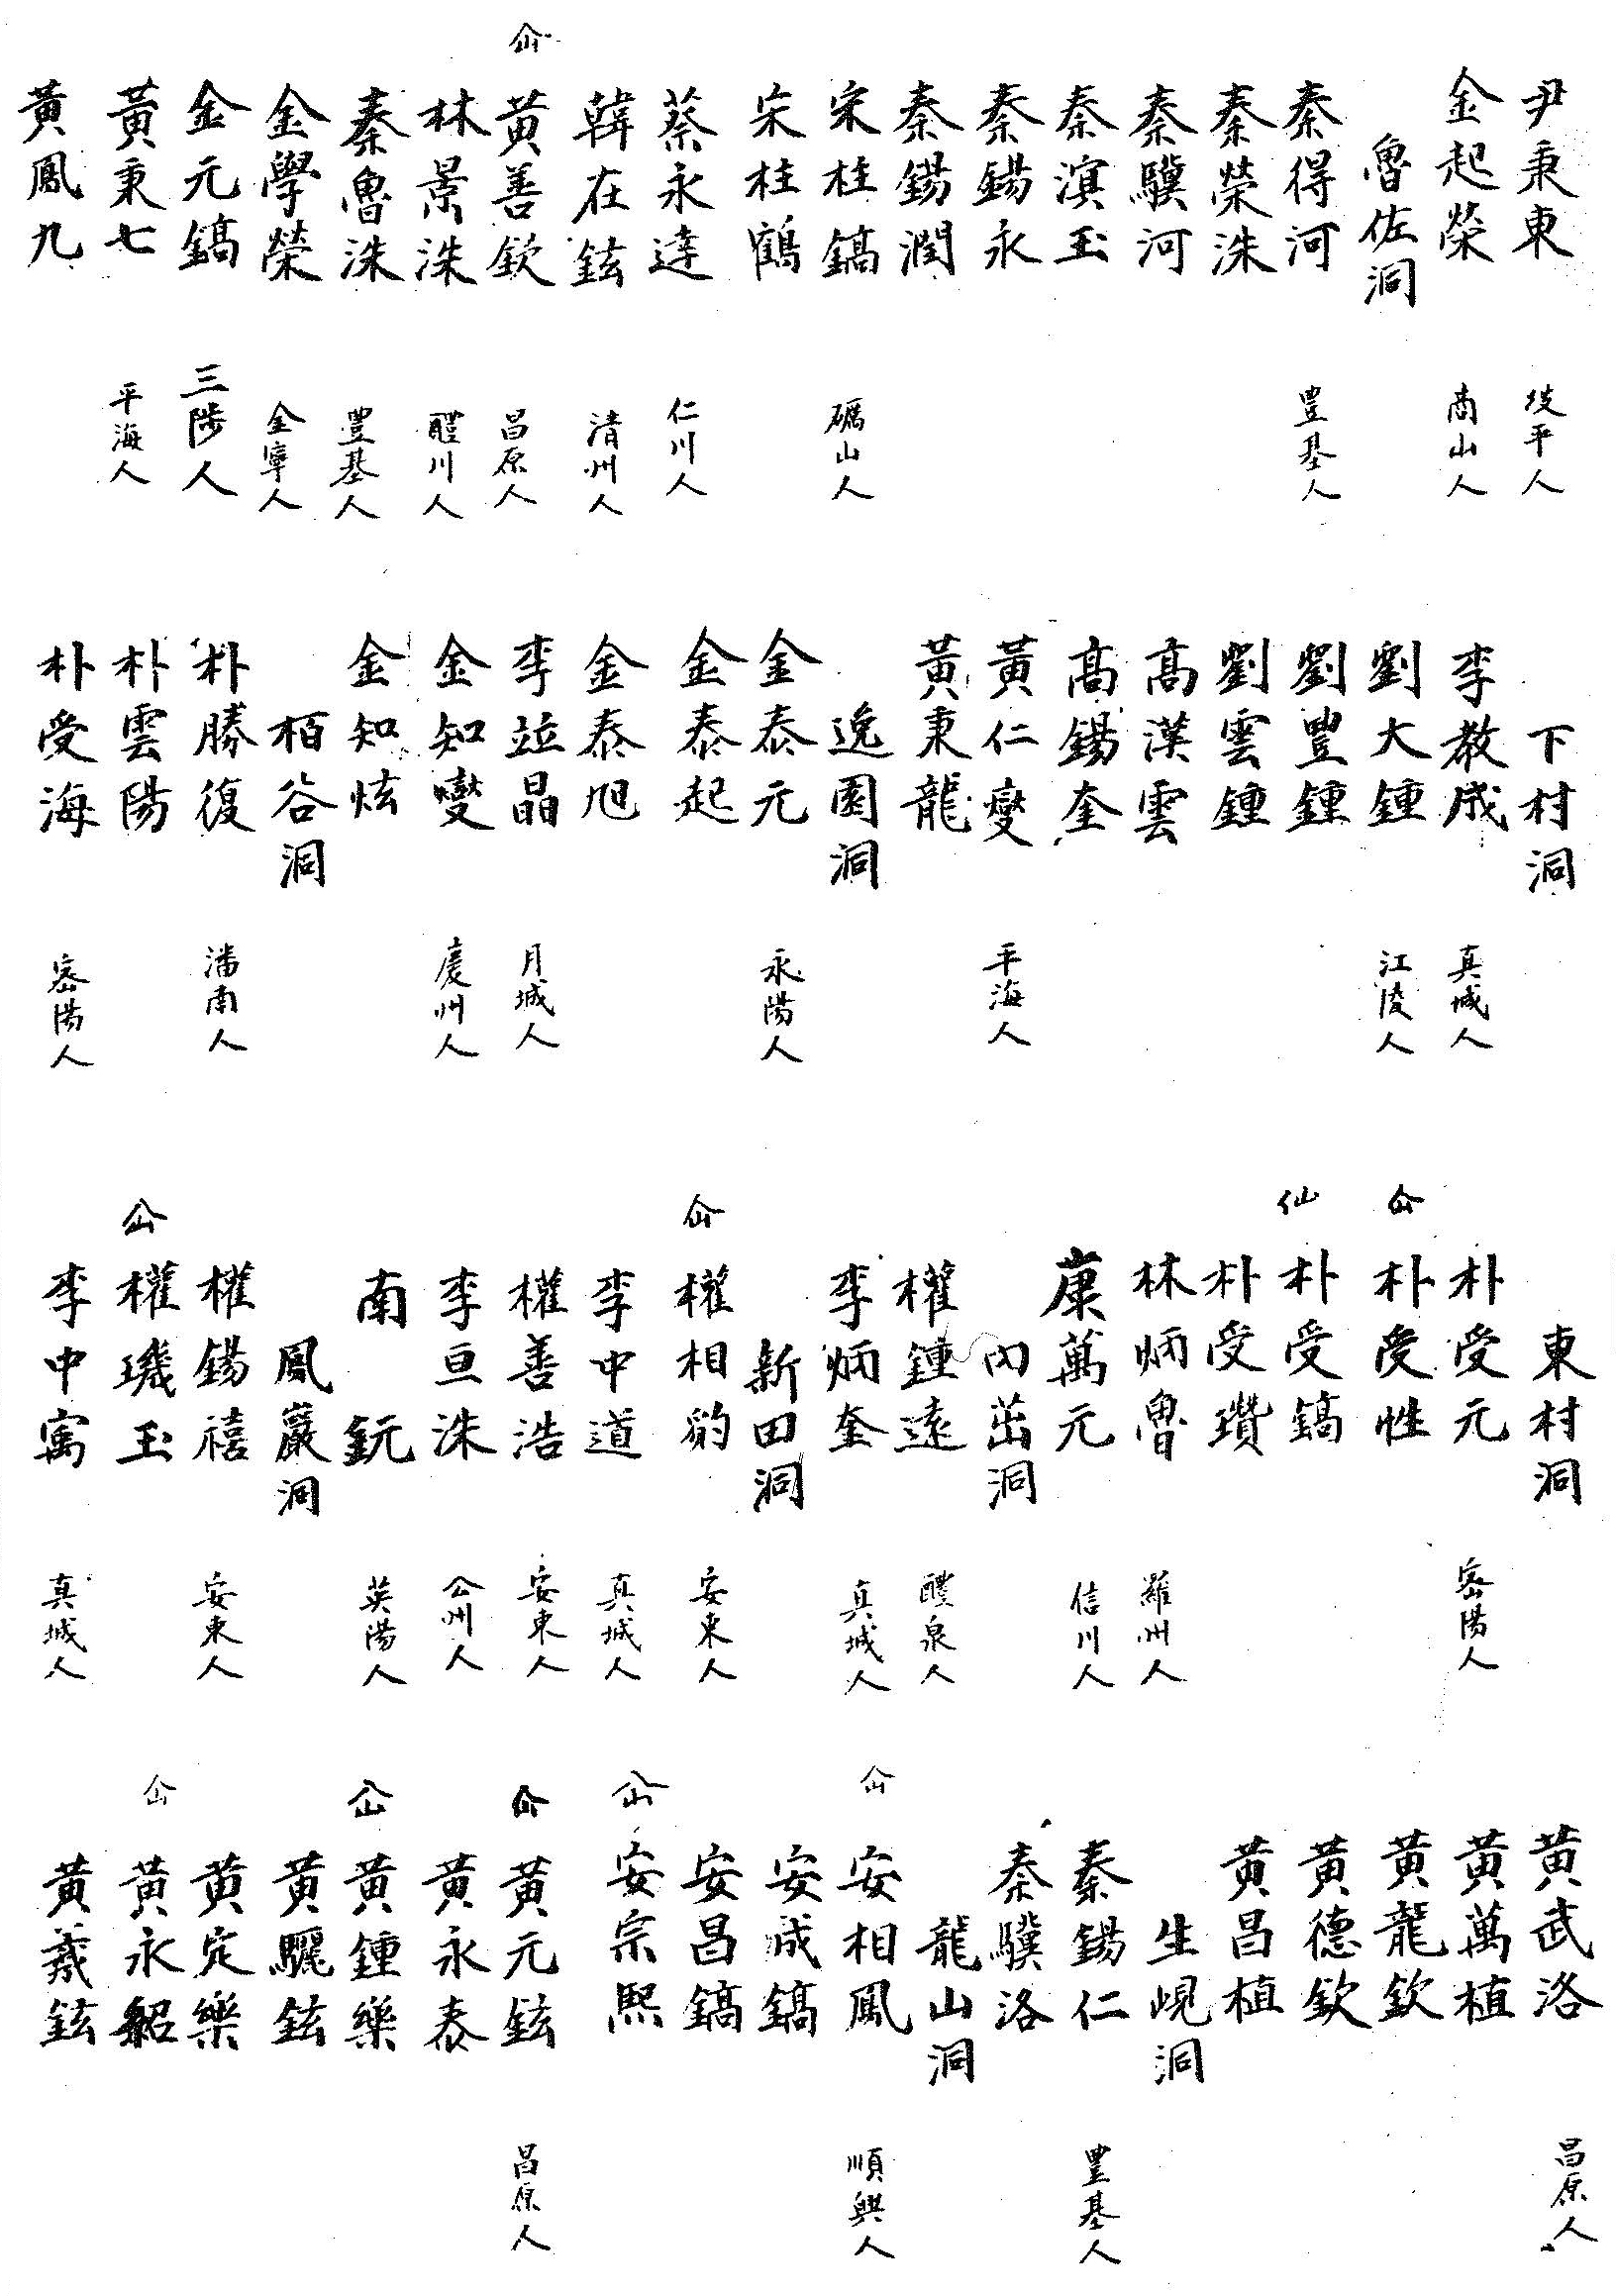 尹秉東 坡平人
金起榮 商山人
魯佐洞
秦得河 豊基人
秦榮洙
秦驥河
秦演玉
秦錫永
秦錫潤
宋柱鎬 礪山人
宋柱鶴
蔡永達 仁川人
韓在鉉 清州人
仚 黃善欽 昌原人
林景洙 醴川人
秦魯洙 豊基人
金學榮 金寧人
金元鎬 三陟人
黃秉七 平海人
黃鳳九
下村洞
李教成 真城人
劉大鍾 江陵人
劉豊鍾
劉雲鍾
高漢雲
高錫奎
黃仁燮 平海人
黃秉龍
逸園洞
金泰元 永陽人
金泰起
金泰旭
李竝晶 月城人
金知燮 慶州人
金知炫
栢谷洞
朴勝復 潘南人
朴雲陽
朴受海 密陽人
東村洞
朴受元 密陽人
仚 朴受性
仙 朴受鎬
朴受瓚
林炳魯 羅州人
康萬元 信川人
內茁洞
權鍾遠 醴泉人
李炳奎 真城人
新田洞
仚 權相豹 安東人
李中道 真城人
權善浩 安東人
李亘洙 公州人
南鈨 英陽人
鳳巖洞
權錫禧 安東人
仚 權璣玉
李中寓 真城人
黃武洛 昌原人
黃萬植
黃龍欽
黃德欽
黃昌植
生峴洞
秦錫仁 豊基人
秦驥洛
龍山洞
仚 安相鳳 順興人
安成鎬
安昌鎬
仚 安宗熙
仚 黃元鉉 昌原人
黃永泰
仚 黃鍾樂
黃驪鉉
黃定樂
仚 黃永紹
黃羲鉉